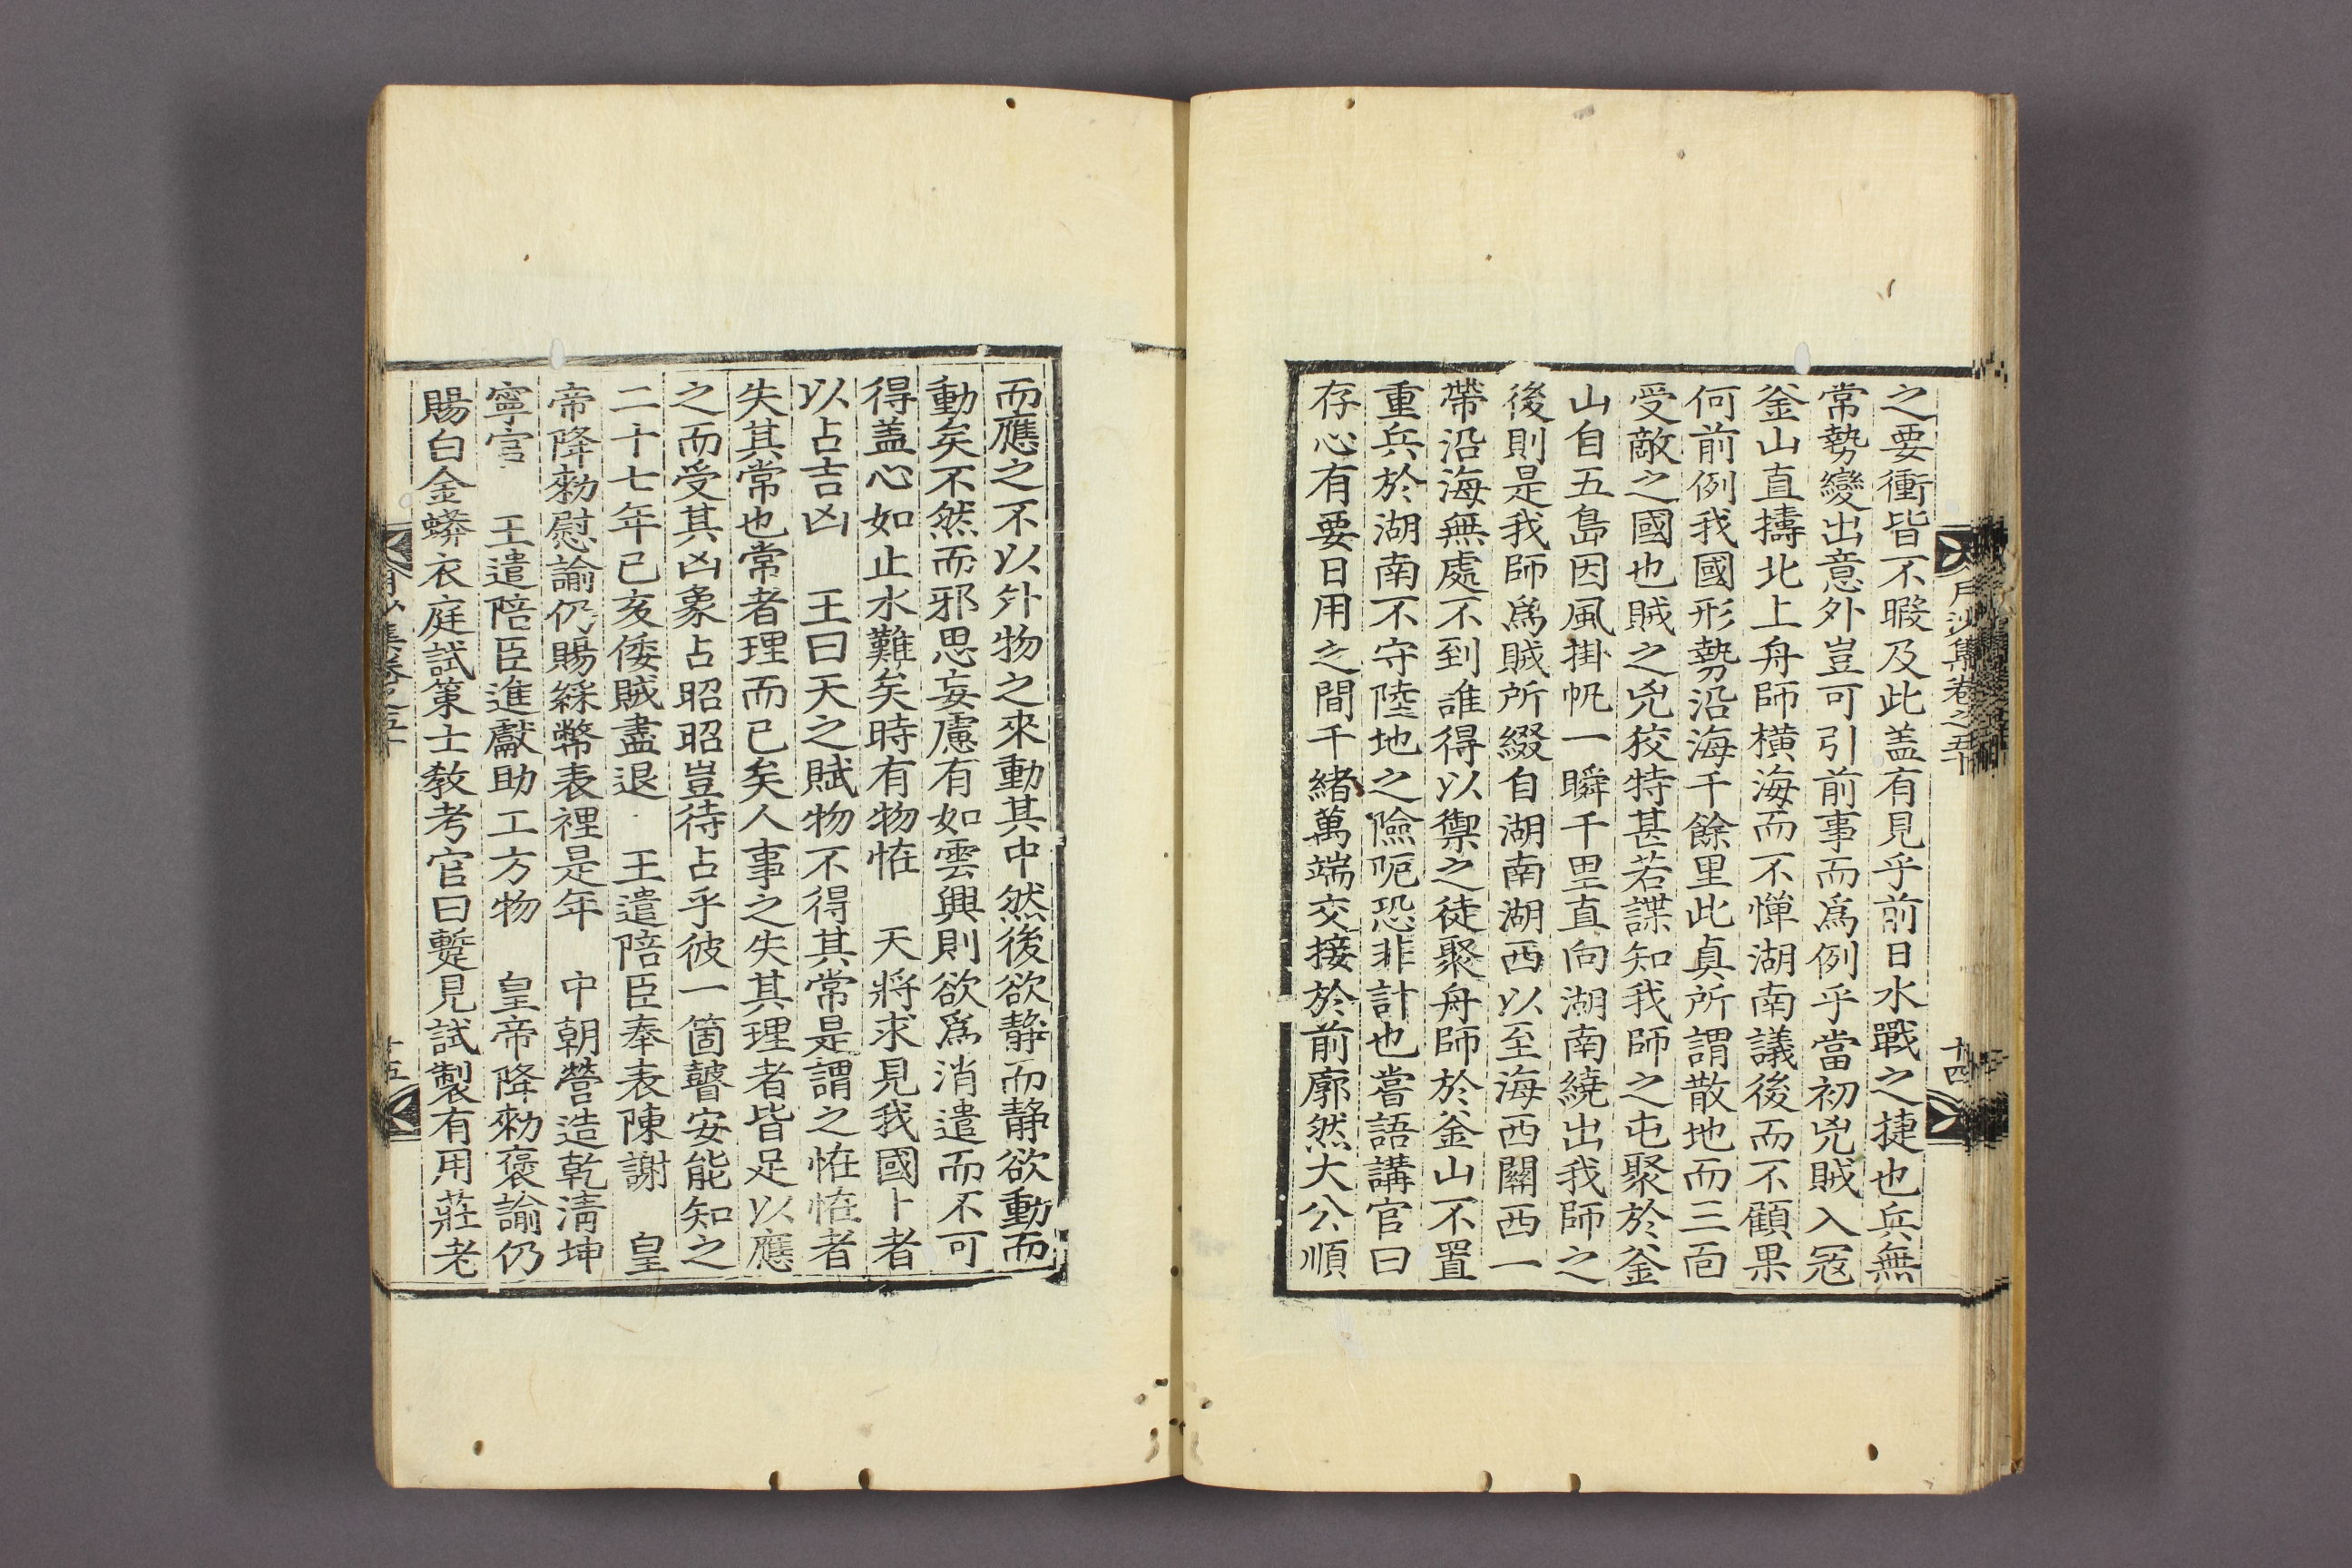 之要衝皆不暇及此盖有見乎前日水戰之捷也兵無
常勢變出意外豈可引前事而爲例乎當初兇賊入冦
釜山直擣北上舟師橫海而不憚湖南議後而不顧果
何前例我國形勢沿海千餘里此眞所謂散地而三面
受敵之國也賊之兇狡特甚若諜知我師之屯聚於釜
山自五島因風掛帆一瞬千里直向湖南繞出我師之
後則是我師爲賊所綴自湖南湖西以至海西關西一
帶沿海無處不到誰得以禦之徒聚舟師於釜山不置
重兵於湖南不守陸地之險阨恐非計也嘗語講官曰
存心有要日用之間千緖萬端交接於前廓然大公順
沙集卷之五十
十四
而應之不以外物之來動其中然後欲静而静欲動而
動矣不然而邪思妄慮有如雲興則欲爲消遣而不可
得盖心如止水難矣時有物恠　天將求見我國卜者
以占吉凶　王曰天之賦物不得其常是謂之恠恠者
失其常也常者理而已矣人事之失其理者皆足以應
之而受其凶象占昭昭豈待占乎彼一箇瞽安能知之
二十七年己亥倭賊盡退　王遣陪臣奉表陳謝　皇
帝降勑慰諭仍賜綵幣表裡是年　中朝營造乾淸坤
寧宮　王遣陪臣進獻助工方物　皇帝降勑褒諭仍
賜白金蟒衣庭試策士敎考官曰蹔見試製有用莊老
集卷之五十
十五